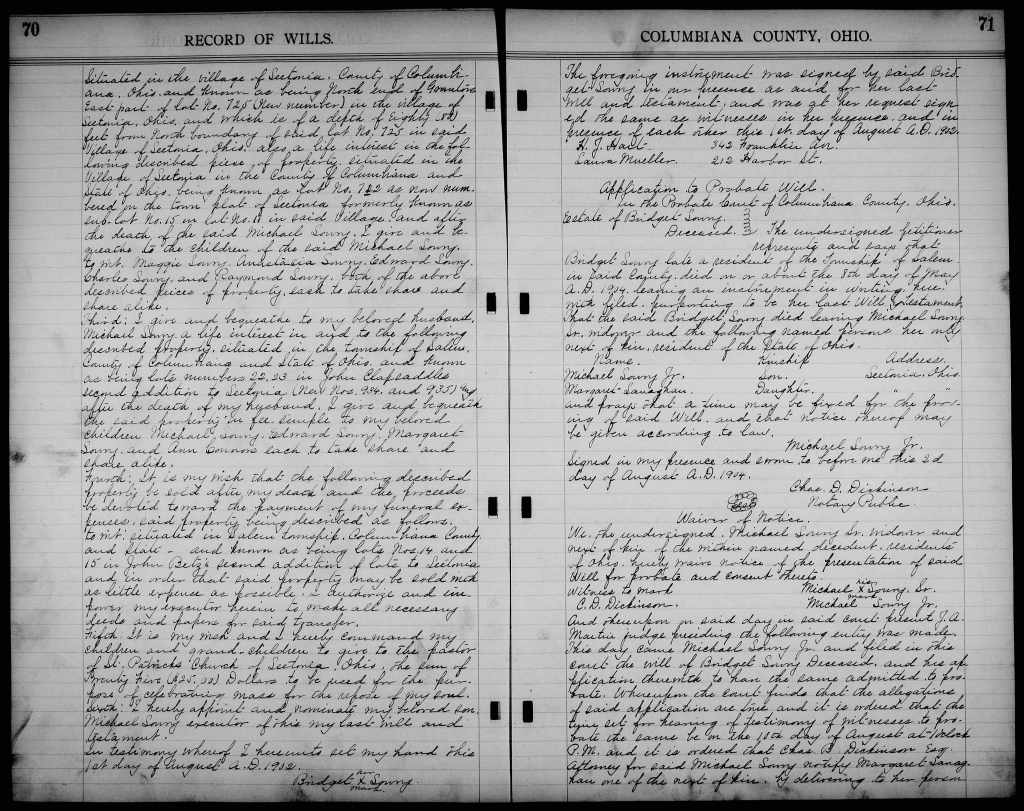 70
RECORD OF WILLS.
Situated in the village of Seetonia, County of Columbi-
ana, Ohio, and known as being North end of
East part of Lot No. 725 (New number) in the village of
Seetonia, Ohio, and which is of a depth of Eighty (80)
feet from North boundary of said Lot No. 725 in said
Village of Seetonia, Ohio, also a life interest in the fol-
lowing described piece, of property, situated in the
Village of Seetonia in the County of Columbiana and
State of Ohio, being known as Lot No. 722 as now num-
bered on the town plat of Seetonia formerly known as
sub-lot No. 15 in lot No. 11 in said Village, and after
the death of the said Michael Sowry, I give and be-
queathe to the children of the said Michael Sowry,
to wit, Maggie Sowry, Annetasia Sowry, Edward Sowry,
Charles Sowry, and Raymond Sowry, both of the above
described pieces of property, each to take share and
share alike.
Third: I give and bequeathe to my beloved husband,
Michael Sowry a life interest in and to the following
described property, situated in the township of Salem,
County of Columbiana and State of Ohio and known
as being lots numbers 22, 23 in John Clapsaddles
second addition to Seetonia (New Nos. 934. and 935) and
after the death of my husband, I give and bequeath
the said property in fee simple to my beloved
children Michael Sowry, Edward Sowry, Margaret
Sowry and Ann Connors each to take share and
share alike.
Fourth: It is my wish that the following described
property be sold after my death and the proceeds
be devoted toward the payment of my funeral ex-
penses, said property being described as follows,
to wit, situated in Salem township, Columbiana County
and state - and known as being lots Nos. 14 and
15 in John Betz's second addition of lots to Seetonia
and in order that said property may be sold with
as little expense as possible, I authorize and em-
power my executor herein to make all necessary
deeds and papers for said transfer.
Fifth: It is my wish and I hereby command my
children and grand-children to give to the pastor
of St. Patricks Church of Seetonia, Ohio, the sum of
Twenty Five ($25.00) Dollars to be used for the pur-
pose of celebrating mass for the repose of my soul.
Sixth: I hereby appoint and nominate my beloved son
Michael Sowry executor of this my last will and
testament.
In testimony whereof I hereunto set my hand this
1st day of August A.D. 1902.
her
Bridget x Sowry
mark
71
COLUMBIANA COUNTY, OHIO.
The foregoing instrument was signed by said Brid-
get Sowry in our presence as and for her last
Will and testament, and was at her request sign-
ed the same as witnesses in her presence, and in
presence of each other this 1st. day of August A.D. 1902.
H. J. Hart. 343 Franklin Av.
Laura Mueller. 212 Harbor St.
Application to Probate Will.
In the Probate Court of Columbiana County, Ohio.
Estate of Bridget Sowry,
Deceased. The undersigned petitioner
represents and says that
Bridget Sowry late a resident of the Township of Salem
in said County, died on or about the 8th day of May
A.D. 1904, leaving an instrument in writing, here-
with filed, purporting to be her last Will & testament,
that the said Bridget Sowry died leaving Michael Sowry
Sr. widower and the following named persons her only
next of kin, resident of the State of Ohio.
Name. Kinship Address.
Michael Sowry Jr. Son. Seetonia, Ohio
Margaret Danghan. Daughter. " "
and prays that a time may be fixed for the prov-
ing of said Will, and that notice thereof may
be given according to law.
Michael Sowry Jr.
Signed in my presence and sworn to before me this 3d
day of August A.D. 1904.
Chas. D. Dickinson
Seal Notary Public.
Waiver of Notice.
We, the undersigned, Michael Sowry Sr. widower and
next of kin of the within named decedent, residents
of Ohio, hereby waive notice of the presentation of said
Will for probate and consent thereto.
his
Witness to mark Michael x Sowry, Sr.
mark
C. D. Dickinson. Michael Sowry Jr.
And thereupon on said day in said court present J. A.
Martin judge presiding the following entry was made.
This day came Michael Sowry Jr. and filed in this
court the will of Bridget Sowry Deceased, and his ap-
plication therewith to have the same admitted to pro-
bate. Whereupon the court finds that the allegations
of said application are true and it is ordered that the
time set for hearing of testimony of witnesses to pro-
bate the same be on the 10th day of August at 1 o'clock
P.M. and it is ordered that Chas. D. Dickinson Esq.
Attorney for said Michael Sowry notify Margaret
han one of the next of kin, by delivering to her person